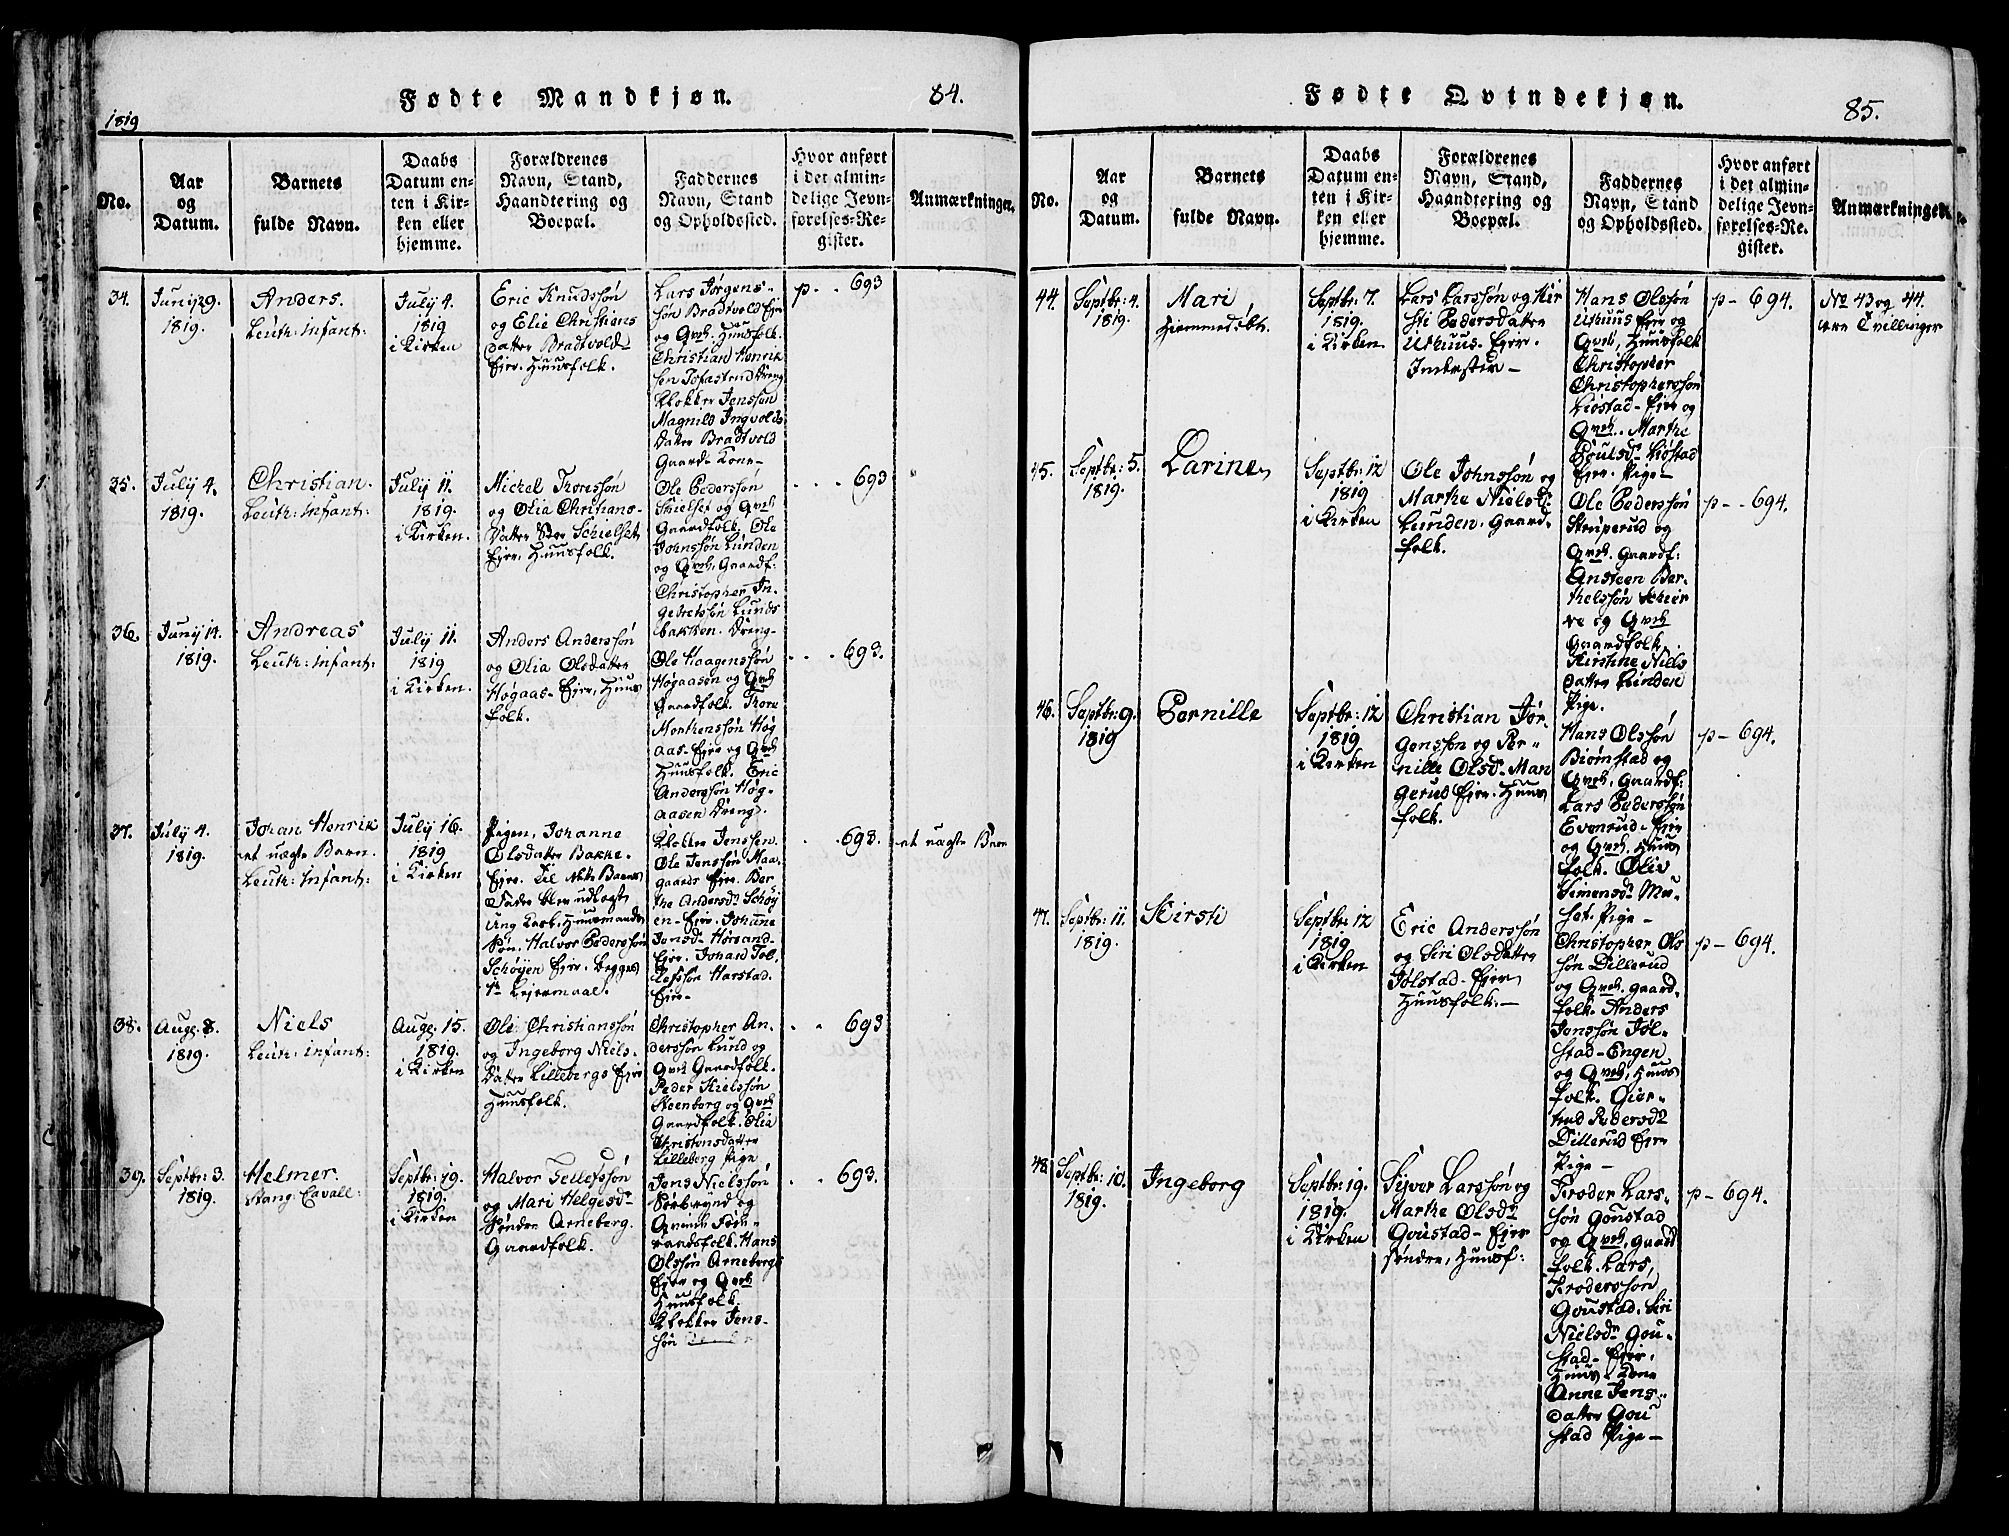 1819
Fødte Mandkjøn.
84.
No.
Aar
og
Datum.
Barnets
fulde Navn.
Daabs
Datum en-
ten i Kir-
ken eller
hjemme.
Forældrenes
Navn, Stand,
Haandtering og
Boepæl.
Faddernes
Navn, Stand
og Opholdssted.
Hvor anført
i det almin-
delige Jevn-
førelses-Re-
gister.
Anmærkninger.
34.
Junÿ 29.
1819.
Anders.
Leuth: infant:
July 4.
1819
i Kirken
Eric Knudssøn
og Elie Christians
datter Bradtvold
Ejer. Huusfolk.
Lars Jørgens-
søn Bradtvold Ejer
og Qvch. Huusfolk.
Christian Henrik
sen Dreng
Klokker Jenssøn
Magnild Ingvolds
datter Bradtvold
Gaard- Kone-
p - . 693
35.
July 4.
1819.
Christian.
Leuth: infant:
July 11.
1819.
i Kirken.
Michel Thoressøn
og Olia Christians-
datter Schielset
Ejer, Huusfolk.
Ole Pederssøn
Skielset og Qvch
Gaardfolk. Ole
Johnssøn Lunden
og Qvch. Gaardf.
Christopher In-
gebretssøn Lunds
bakken. Dreng-
. . . 693
36.
Junÿ 14.
1819.
Andreas
Leuth: infant:
July 11.
1819
i Kirken.
Anders Anderssøn
og Olia Olsdatter
Høgaas- Ejer, Huus
folk.
Ole Haagenssøn
Høgaasen og Qvch
Gaardfolk. Thore
Morthenssøn Høg
aas- Ejer og Qvch
Huusfolk. Eric
Anderssøn Høg-
aasen Dreng.
. . . 693.
37.
July 4.
1819.
Johan Henrik
et uægte Barn.
Leuth: infant:
July 16.
1819
i Kirken
Pigen, Johanne
Olsdatter Bakke-
Ejer. Til dette Barnes
Fader blev udlagt
Ung Karl, Huusmands
Søn, Halvor Pederssøn
Schøyen Ejer. begges
1te Lejermaal.
Klokker Jenssøn.
Ole Jenssøn Maa-
gaard Ejer. Ber
the Andersdr Schøy
en- Ejer. Johanne
Jonsdr Hørsand-
Ejer. Johan Tol,
lefssøn Harstad.
Ejer-
. . 693.
et uægte Barn
38.
Aug: 8.
1819.
Niels
Leuth: infant:
Aug: 15.
1819.
i Kirken
Ole Christianssøn
og Ingeborg Niels-
datter Lilleberg Ejer
Huusfolk.
Christopher An-
derssøn Lund og
Qvch Gaardfolk.
Peder Nielssøn
Steenborg og Qvch
Gaardfolk. Olia
Christensdatter
Lilleberg Pige
. . 693
39.
Septbr: 3.
1819.
Helmer.
Stang: Cavall:
Septbr: 19.
1819.
i Kirken
Halvor Tellefssøn
og Mari Helgesdr
Søndre Arneberg.
Gaardfolk.
Jens Nielssøn
og
Qvinde
raadsfolk. Hans
Olssøn Arneberg
Ejer og Qvch
Huusfolk.
Klokker Jens-
søn
. . 693.
Fødte Qvindekjøn.
85.
No.
Aar
og
Datum.
Barnets
fulde Navn.
Daabs
Datum en-
ten i Kir-
ken eller
hjemme.
Forældrenes
Navn, Stand,
Haandtering og
Boepæl.
Faddernes
Navn, Stand
og Opholdssted.
Hvor anført
i det almin-
delige Jevn-
førelses-Re-
gister.
Anmærkninger.
44.
Septbr: 4.
1819.
Mari
Hjemmedøbt.
Septbr: 7.
1819.
i Kirken
Lars Larssøn og Kir
sti Pedersdatter
Uthuus. Ejer.
Inderster-
Hans Olssøn
Uthuus Ejer og
Qvch, Huusfolk
Christopher
Christopherssøn
Liøstad- Ejer og
Qvch. Marthe
Poulsdr Liøstad
Ejer. Pige-
p- 694.
No 43 og 44.
ere Tvillinger
45.
Septbr: 5.
1819.
Larine
Septbr: 12
1819
i Kirken
Ole Johnssøn og
Marthe Nielsd.
Lunden. Gaard-
folk.
Ole Pederssøn
Struperud og
Qvch. Gaardf:
Ansteen Ber-
thelssøn
og Qvch
Gaardfolk,
Kirstine Niels
datter Lunden
Pige.
p- - 694.
46.
Septbr: 9.
1819
Pernille
Septbr: 12
1819
i Kirken
Christian Jør-
genssøn og Per-
nille Olsdr Man
gerud Ejer. Huus
folk.
Hans Olssøn
Biørnstad og
Qvch, Gaardf:
Lars Pederssøn
Evenrud. Ejer
og Qvch, Huus
folk. Oliv
Simensdr Mu-
set. Pige-
p- 694.
47.
Septbr: 11.
1819.
Kirsti
Septbr: 12
1819
i Kirken
Eric Anderssøn
og Siri Olsdatter
Jølstad- Ejer
Huusfolk.-
Christopher Ols
søn Dillerud
og Qvch. gaard-
folk. Anders
Jonssøn Jøl-
stad-Engen
og Qvch, Huus
folk. Gjer-
trud Pedersdr
Dillerud Ejer
Pige-
p- 694.
48.
Septbr: 10.
1819.
Ingeborg
Septbr: 19.
1819.
i Kirken
Syver Larssøn og
Marthe Olsdr
Goustad- Ejer
søndre, Huusf:
Froder Lars-
søn Goustad
og Qvch, gaard
folk. Lars,
Froderssøn
Goustad. Siri
Nielsdr Gou-
stad- Ejer,
Huus- Kone
Anne Jens-
datter Gou
stad Pige-
p- 694.